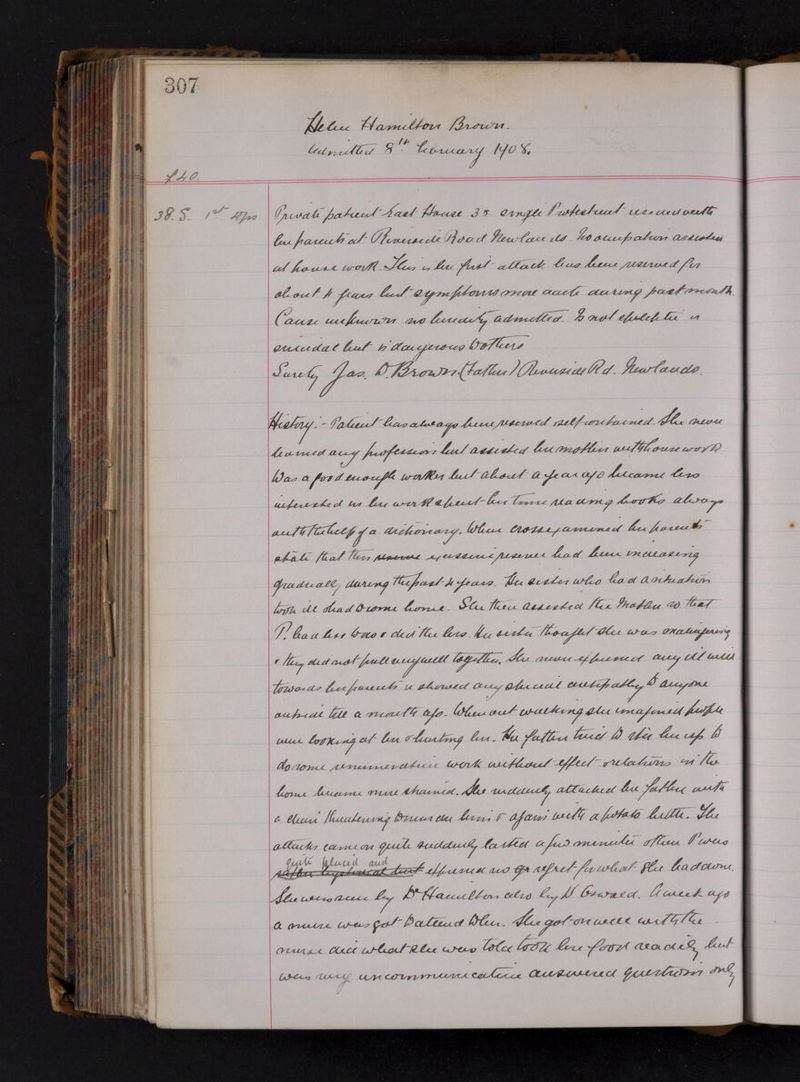 307
Helen Hamilton Brown.
Admitted 8th February 1908.
£40.
38. S. 1st
Private patient East House 38 single Protestant resided with
her parents at Riverside Road Newlands. No occupation assisted
at house work. This is her first attack has been reserved for
about 4 years but symptoms more acute during past month.
Cause unknown no heredity admitted. Is not epileptic or
suicidal but is dangerous to others
Surety Jas. D. Brown (Father) Riverside Rd. Newlands.
History:- Patient has always been reserved self contained. She never
learned any profession but assisted her mother with housework
Was a good enough worker but about a year ago became less
interested in her work & spent her time reading books always
with the help of a dictionary. When crossexamined her parents
state that this excessive reserve had been increasing
gradually during the past 4 years. Her sister who had a situation
took ill & had to come home. She then assisted the Mother so that
P. had less to do & did the less. Her sister thought she was malingering
& they did not pull very well together. She never expressed any ill will
towards her parents or showed any special antipathy to anyone
outside till a month ago. When out walking she imagined people
were looking at her & hunting her. Her father tried to stir her up to
do some remunerative work without effect & relations in the
home became more strained. She suddenly attacked her father with
a chair threatening to murder him & again with a potato beetle. The
attacks came on quite suddenly lasted a few minutes & then P. was
quite placid and
rather hysterical but expressed no regret for what she had done.
She was seen by Dr Hamilton also by Dr Oswald. A week ago
a nurse was got to attend to her. She got on well with the
nurse did what she was told took her food readily but
was very uncommunicative answered questions only